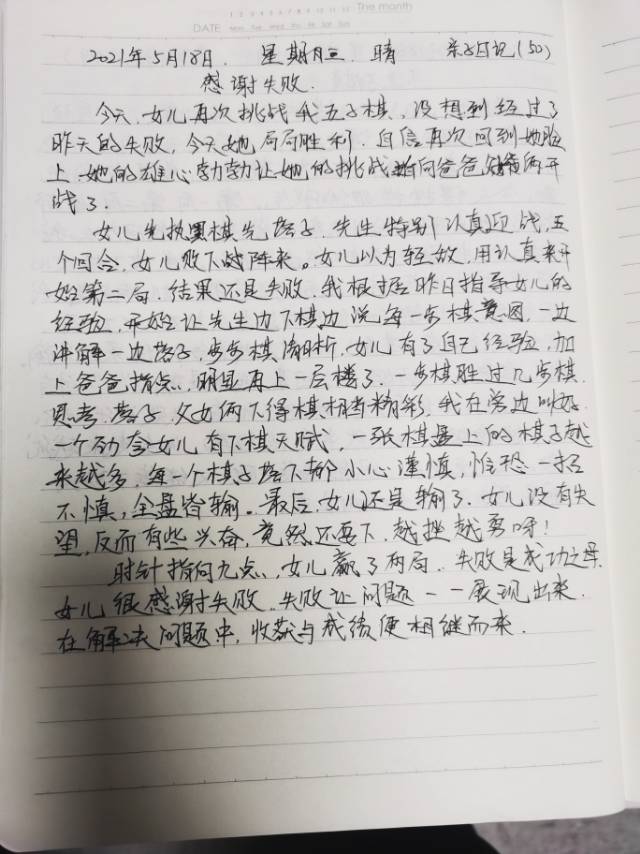 The month
DATE Mon Tue Wed Thu Fri Sat Sun
2021年5月18日. 星期三 晴 亲子日记(50)
感谢失败.
今天,女儿再次挑战我五子棋,没想到经过了
昨天的失败,今天她局局胜利.自信再次回到她脸
上.她的雄心勃勃让她的挑战 向爸爸 俩开
战了.
女儿先执黑棋先落子.先生特别认真迎战,五
个回合,女儿败下 阵来。女儿以为轻敌,用认真来开
始第二局.结果还是失败.我根据昨日指导女儿的
经验,开始让先生边下棋边说每一步棋意图,一边
讲解一边落子,步步棋 析.女儿有了自己经验,加
上爸爸指点,明显再上一层楼了.一步棋胜过几步棋.
思考.落子.父女俩下得棋相当精彩,我在旁边叫好.
一个劲夸女儿有下棋天赋,一张棋盘上的棋子越
来越多,每一个棋子落下都小心谨慎,惟恐一招
不慎,全盘皆输。最后,女儿还是输了.女儿没有失
望,反而有些兴奋,竟然还要下.越挫越勇呀!
时针指向九点,女儿赢了两局.失败是成功之母.
女儿很感谢失败.失败让问题一一展现出来.
在解决问题中,收获与成绩便相继而来.